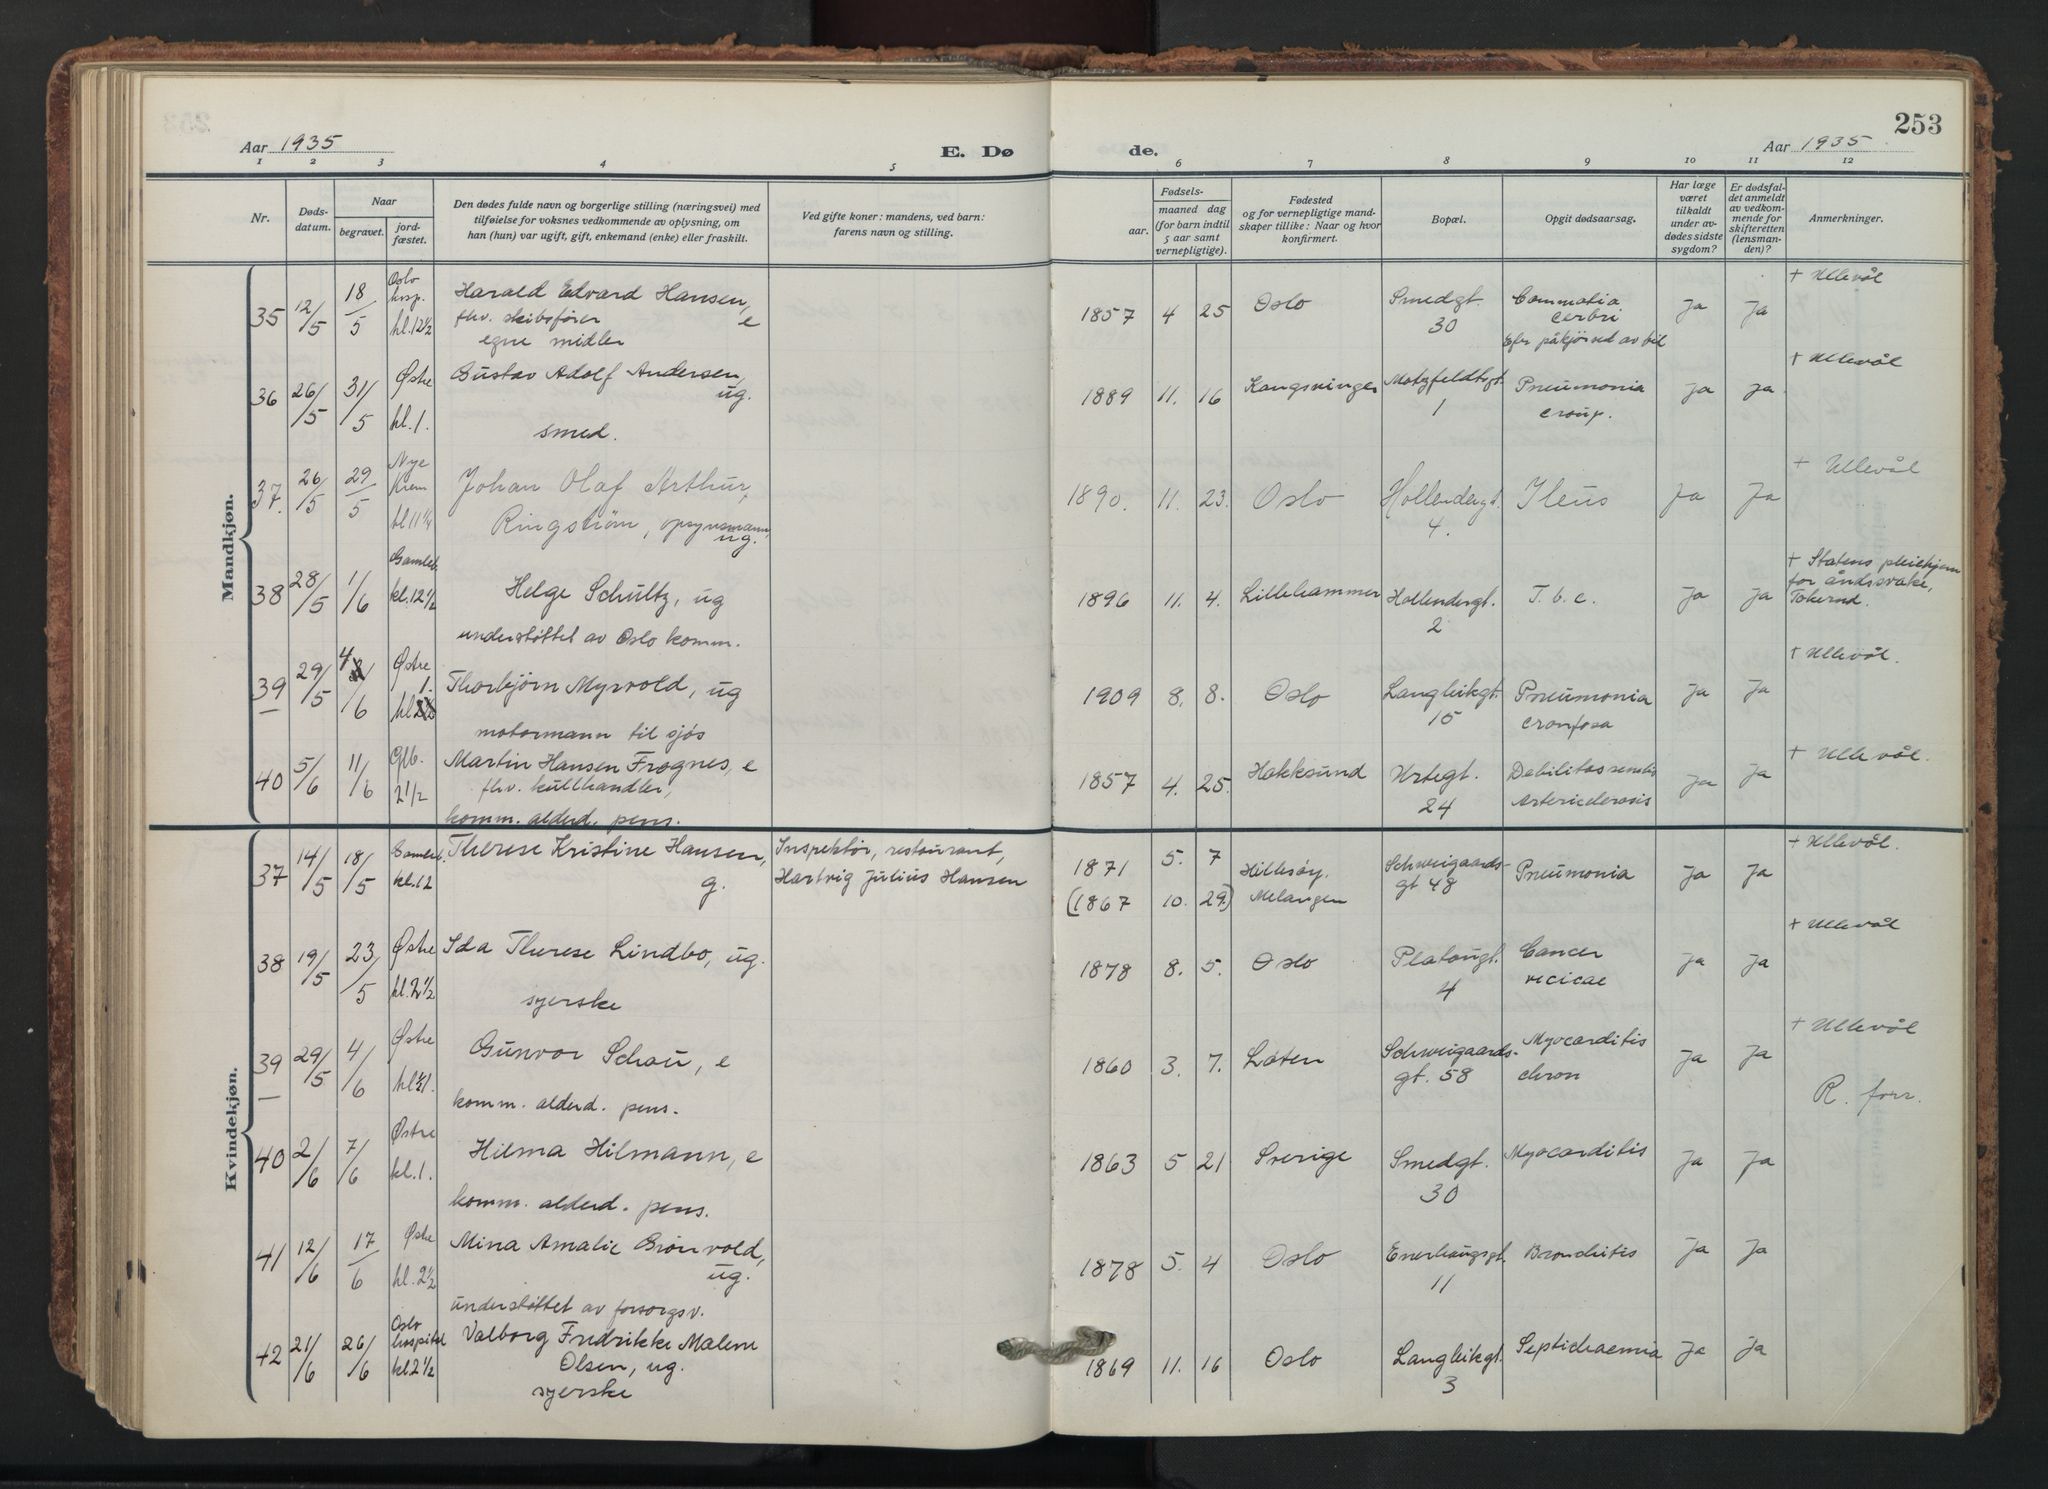 253
Aar 1935
E. Dø
de.
Aar 1935
1 2 3 4 5 6 7 8 9 10 11 12
Nr.
Døds-
datum.
Naar
begravet.
jord-
fæstet.
Den dødes fulde navn og borgerlige stilling (næringsvei) med
tilføielse for voksnes vedkommende av oplysning, om
han (hun) var ugift, gift, enkemand (enke) eller fraskilt.
Ved gifte koner: mandens, ved barn:
farens navn og stilling.
Fødsels-
aar.
maaned dag
(for barn indtil
5 aar samt
vernepligtige).
Fødested
og for vernepligtige mand-
skaper tillike: Naar og hvor
konfirmert.
Bopæl.
Opgit dødsaarsag.
Har læge
været
tilkaldt
under av-
dødes sidste
sygdom?
Er dødsfal-
det anmeldt
av vedkom-
mende for
skifteretten
(lensman-
den)?
Anmerkninger.
Mandkjøn.
35 12/5 18/5 Oslo hosp. kl. 12½ Harald Edvard Hansen, e
fhv. skibsfører
egne midler
1857 4 25 Oslo Smedgt. 30 Commotia cerbri
Efr påkjørsel av bil Ja Ja + Ullevål
36 26/5 31/5 Østre kl. 1. Gustav Adolf Andersen, ug.
smed.
1889 11. 16 Kongsvinger Motzfeldtsgt. 1 Pneumonia croup. Ja Ja. + Ullevål
37. 26/5 29/5 Nye Krem kl 11¼ Johan Olaf Arthur,
Ringstrøm, opsynsmann, ug.
1890. 11. 23. Oslo Hollendergt. 4. Ileus Ja Ja + Ullevål
38 28/5 1/6 Gamleb. kl. 12½ Helge Schultz, ug
understøttet av Oslo komm.
1896 11. 4. Lillehammer Hollendergt. 2 T. b. c. Ja Ja + Statens pleiehjem
for åndssvake,
39 29/5 4/6 Østre 1. kl Thorbjørn Myrvold, ug
motormann til sjøs
1909 8. 8. Oslo Langleikgt. 15 Pneumonia Ja Ja + Ullevål.
40 5/6 11/6 Glb. 2½ Martin Hansen Frognes, e
fhv. kullhandler,
komm. alderd. pens.
1857 4. 25. Hokksund Urtegt. 24 Debilitas senilis
Ja Ja + Ullevål.
Kvindekjøn.
37 14/5 18/5 Gamleb. kl. 12 Therese Kristine Hansen, g. Inspektør, restaurant,
Hartvig Julius Hansen
1871 5. 7 Hillesøy. Schweigaards-
gt 48 Pneumonia Ja Ja + Ullevål.
(1867 10. 29.) Melangen
38 19/5 23/5 Østre kl. 2½ Ida Therese Lindbo, ug.
syerske
1878 8. 5. Oslo Platougt. 4 Cancer Ja Ja + Ullevål
39 29/5 4/6 Østre Gunvor Schou, e
komm. alderd. pens.
1860 3. 7. Løten Schweigaards-
gt. 58 Myocarditis
chron Ja Ja + Ullevål
R. forr.
40 2/6 7/6 Østre kl. 1. Hilma Hilmann, e
komm. alderd. pens.
1863 5 21 Sverige Smedgt. 30 Myocarditis Ja Ja
41 12/6 17/6 Østre kl. 2½ Mina Amalie Grönvold, ug.
understøttet av forsorgsv.
1878 5. 4 Oslo Enerhaugsgt. 11 Bronchitis Ja Ja
42 21/6 26/6 Oslo hospital kl 2½ Valborg Fredrikke Malene
Olsen, ug.
syerske
1869 11. 16 Oslo Langleikgt. 3 Septichaemia Ja Ja